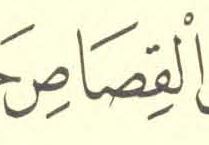 الْقِصَاصِ